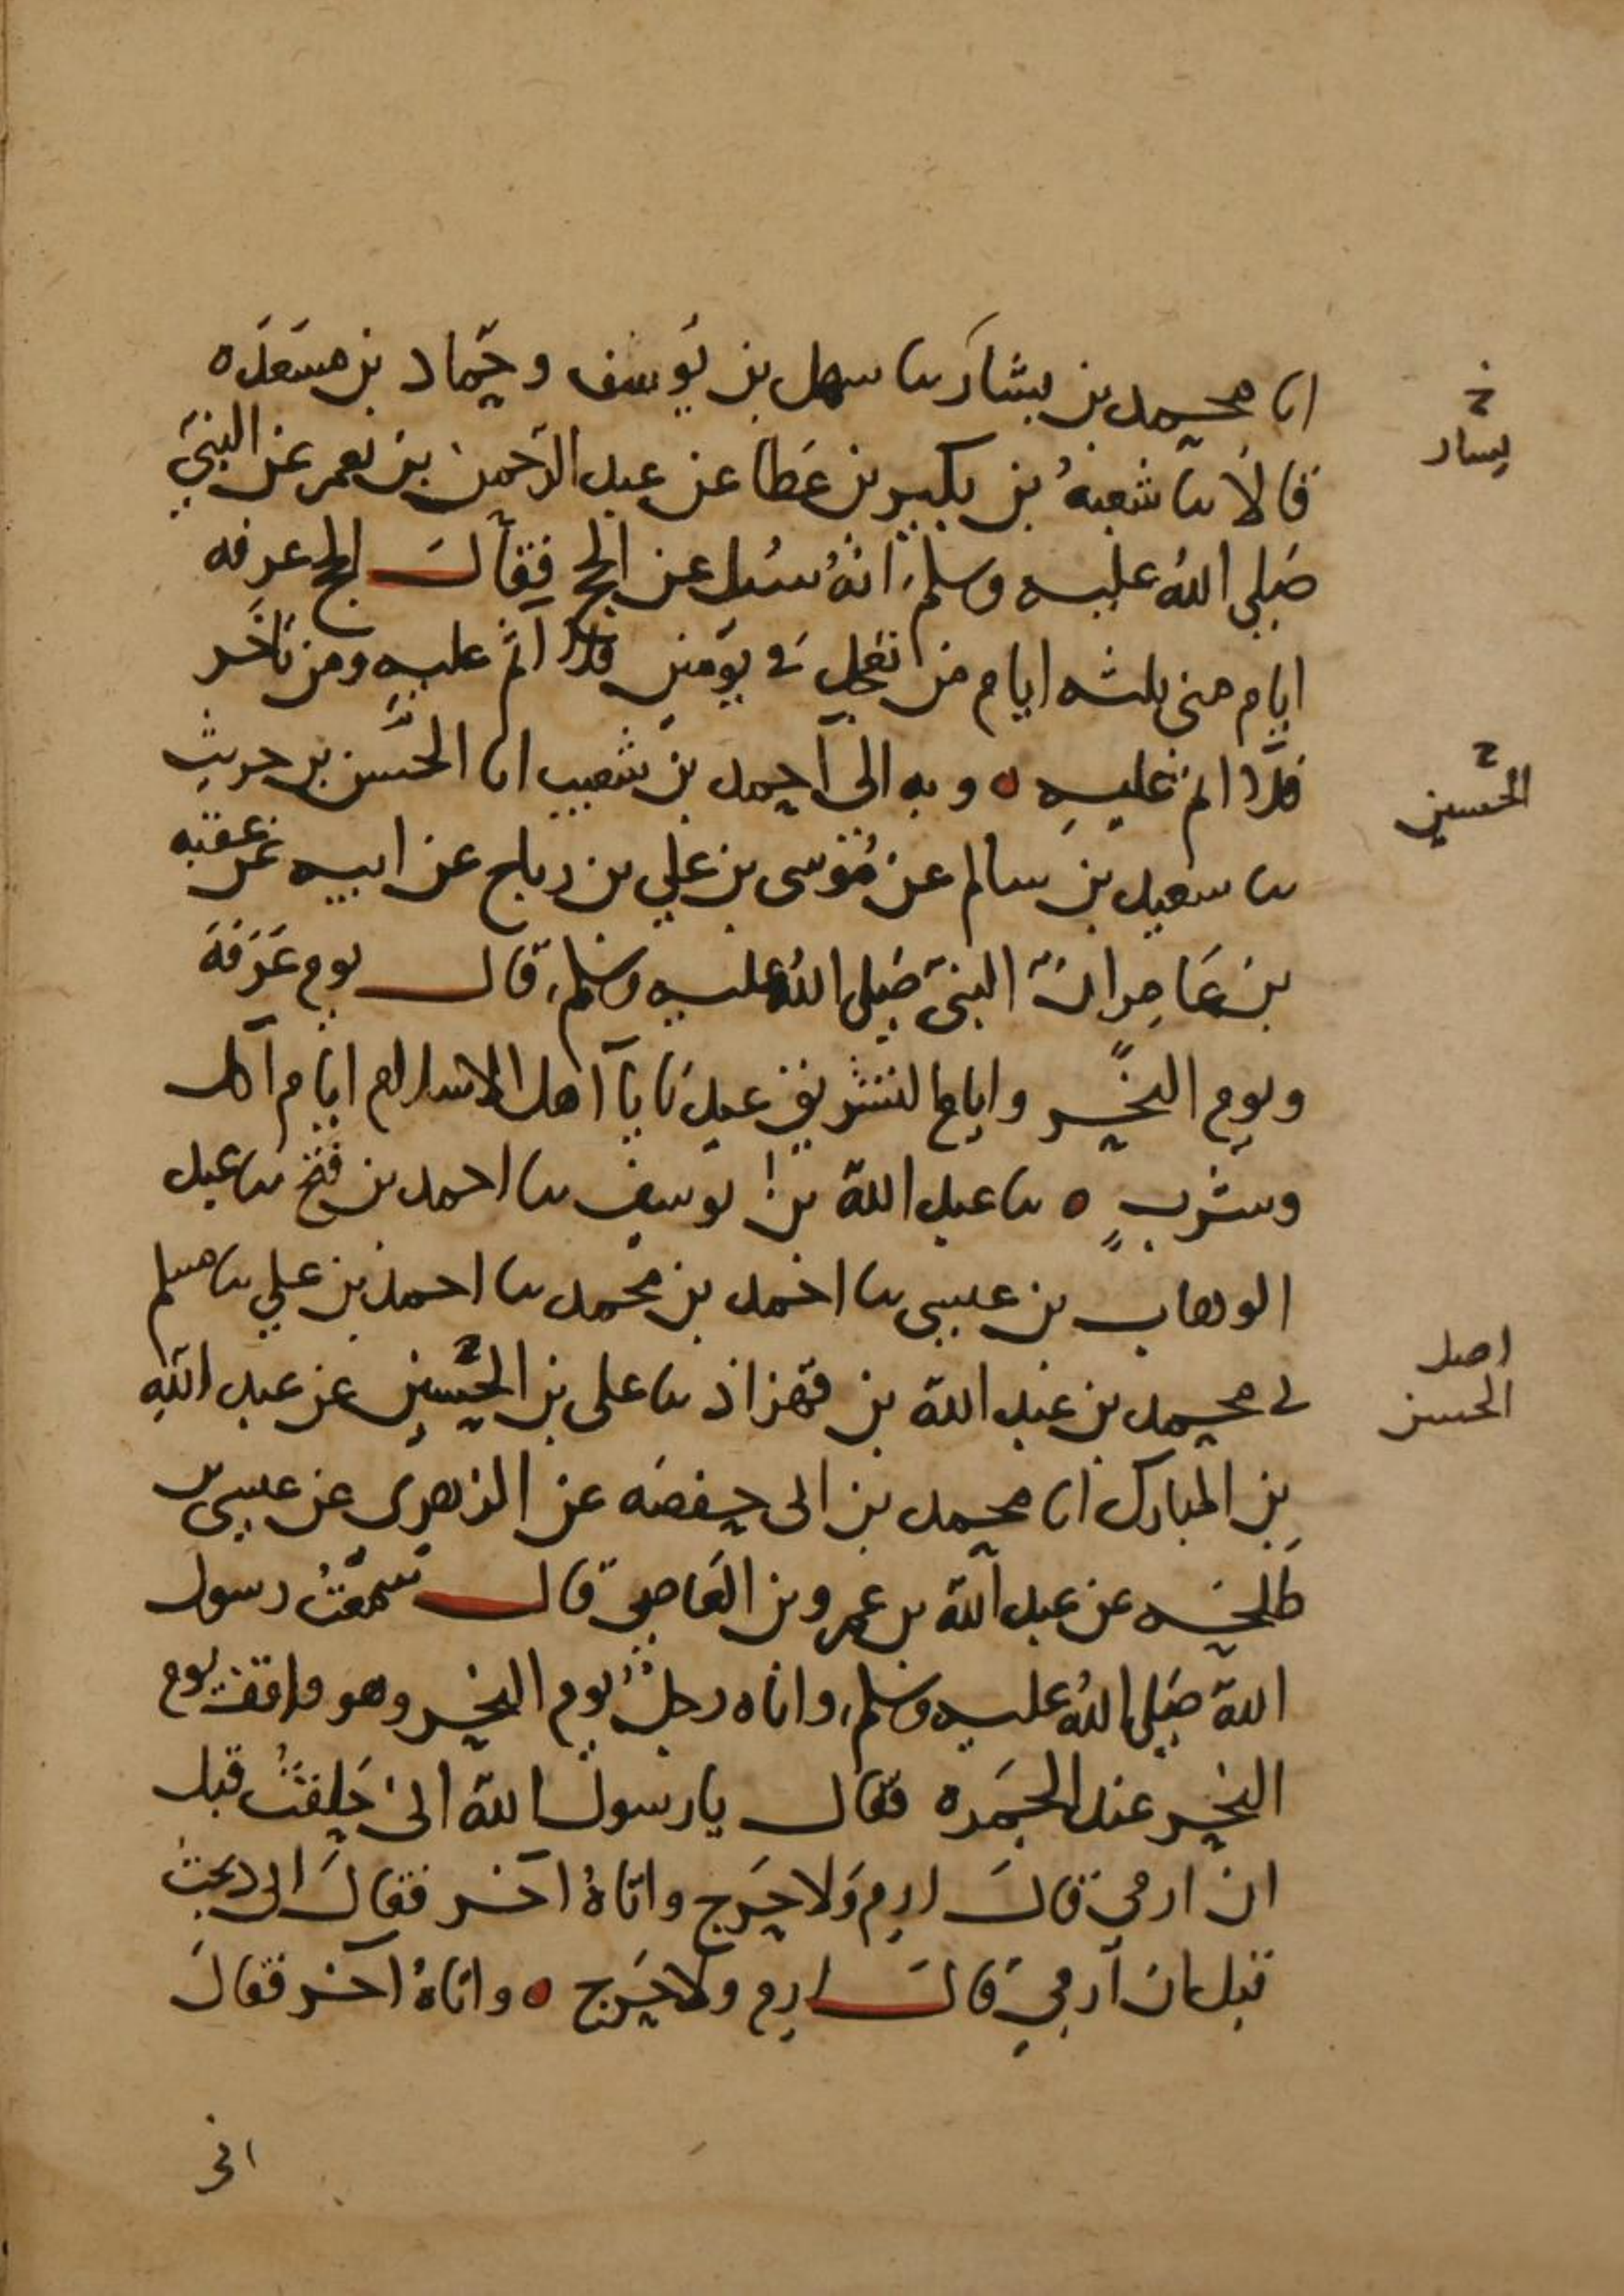 انا محمد بن بشار نا سهل بن يوسف وحماد بن مسعده
خ
يسار
قالا نا شعبة بن بكير بن عطا عن عبد الرحمن بن يعمر عن النبي
صلى الله عليه وسلم انه سئل عن الحج فقال الحج عرفه
ايام منى ثلثه ايام من تعجل في يومين فلا اثم عليه ومن تاخر
فلا اثم عليه ٥ وبه الى احمد بن شعيب انا الحسن بن حريث
الحسين
نا سعيد بن سالم عن موسى بن علي بن رباح عن ابيه عن عقبه
بن عامر ان النبي صلى الله عليه وسلم قال يوم عرفة
ويوم النحر وايام التشريق عيدنا يا اهل الاسلام ايام اكل
وشرب ٥ نا عبد الله بن يوسف نا احمد بن فتح نا عبد
الوهاب بن عيسى نا احمد بن محمد نا احمد بن علي نا مسلم
ني محمد بن عبد الله بن قهزاذ نا علي بن الحسين عن عبد الله
اصل
الحسن
بن المبارك انا محمد بن ابى حفصه عن الزهرى عن عيسى بن
طلحه عن عبد الله بن عمرو بن العاصي قال سمعت رسول
الله صلى الله عليه وسلم، واتاه رجل يوم النحر وهو واقف يوم
النحر عند الجمره فقال يا رسول الله انى حلقت قبل
ان ارمي قال ارم ولا حرج واتاه آخر فقال انى ذبحت
قبل ان ارمي قال ارم ولا حرج ٥ واتاه آخر فقال
انى